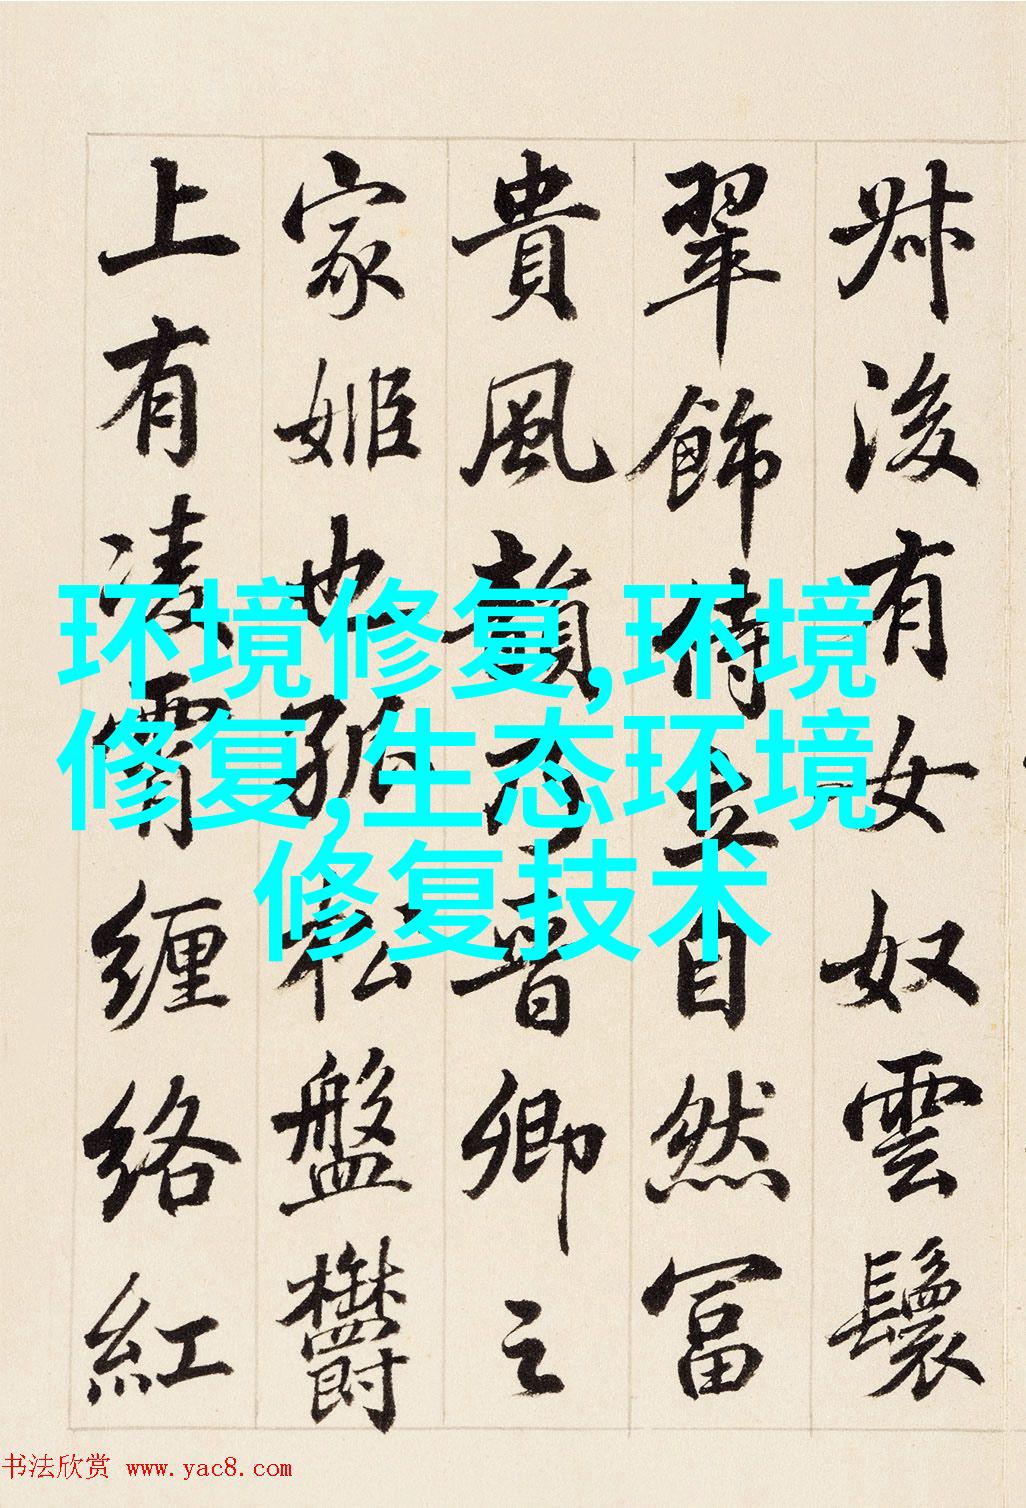 叔後有女奴雲鬟
翠飾侍立自然富
貴風韻乃晋卿之
家姬也孤松盤鬱
上有凌霄纏絡紅
环境修复,环境
修复,生态环境
修复技术
书法欣赏 www.yac8.com